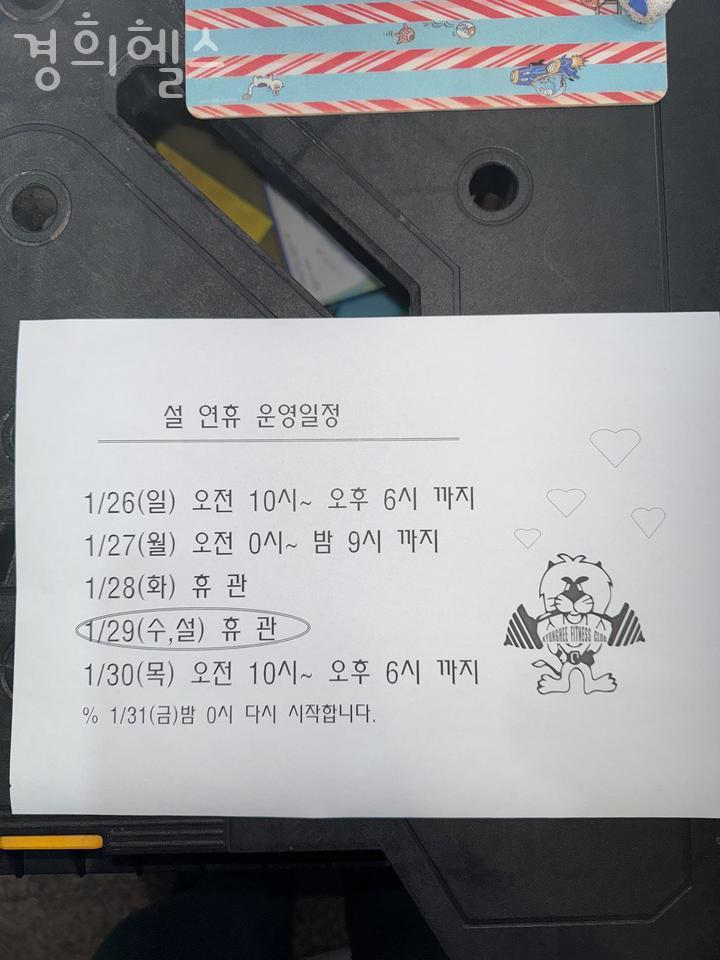 경희헬스
설 연휴 운영일정
1/26(일) 오전 10시~ 오후 6시 까지
1/27(월) 오전 0시~ 밤 9시 까지
1/28(화) 휴 관
1/29(수,설) 휴 관
1/30(목) 오전 10시~ 오후 6시 까지
% 1/31(금)밤 0시 다시 시작합니다.
KYUNGHEE FITNESS CLUB